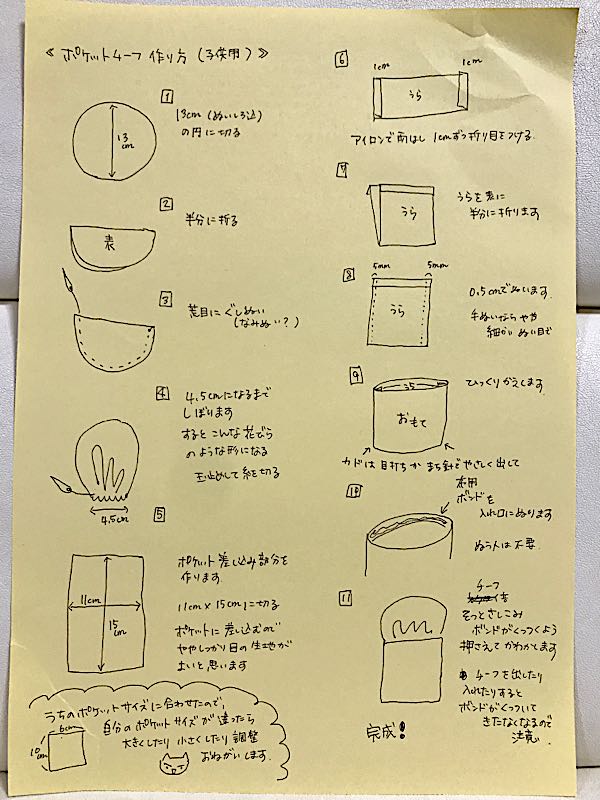 《 ポケットチーフ 作り方 (子供用) 》
1
13cm (ぬいしろ込)
の円に切る
13
cm
2
半分に折る
表
3
荒目に ぐしぬい
(なみぬい?)
4
4.5cmになるまで
しぼります
すると こんな 花びら
のような形になる
玉止めして 糸を切る
4.5cm
5
ポケット 差し込み部分を
作ります.
11cm×15cmに切る
ポケットに 差し込むので
ややしっかり目の生地が
よいと思います
11cm
15
cm
うちのポケットサイズに合わせたので,
自分のポケットサイズが違ったら
大きくしたり 小さくしたり 調整
おねがいします.
6cm
10
cm
6
1cm
1cm
うら
アイロンで両はし 1cmずつ折り目をつける.
7
うら
うらを表に
半分に折ります
8
5mm
5mm
うら
0.5cmでぬいます.
手ぬいなら やや
細かい ぬい目で
9
うら
おもて
ひっくりかえします
カドは目打ちか まち針でやさしく出して
10
布用
ボンドを
入れ口にぬります
ぬう人は不要.
11
チーフ
そっとさしこみ
ボンドがくっつくよう
押さえて かわかします
チーフを出したり
入れたりすると
ボンドがくっついて
きたなくなるので
注意.
完成!